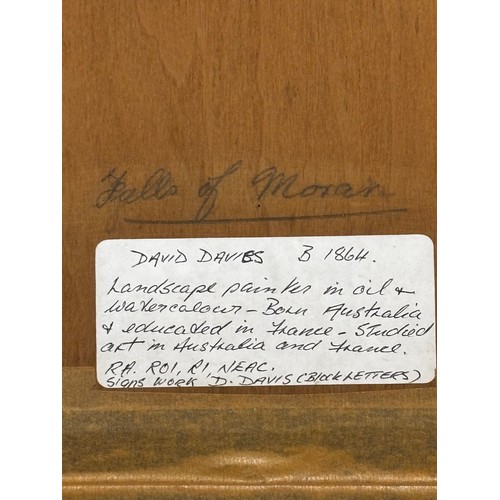 Falls of Moran
DAVID DAVIES B 1864.
Landscape painter in oil &
watercolour - Born Australia
& educated in France - Studied
art in Australia and France.
RA. ROI, RI, NEAC.
Signs work D. DAVIS (Block LETTERS)